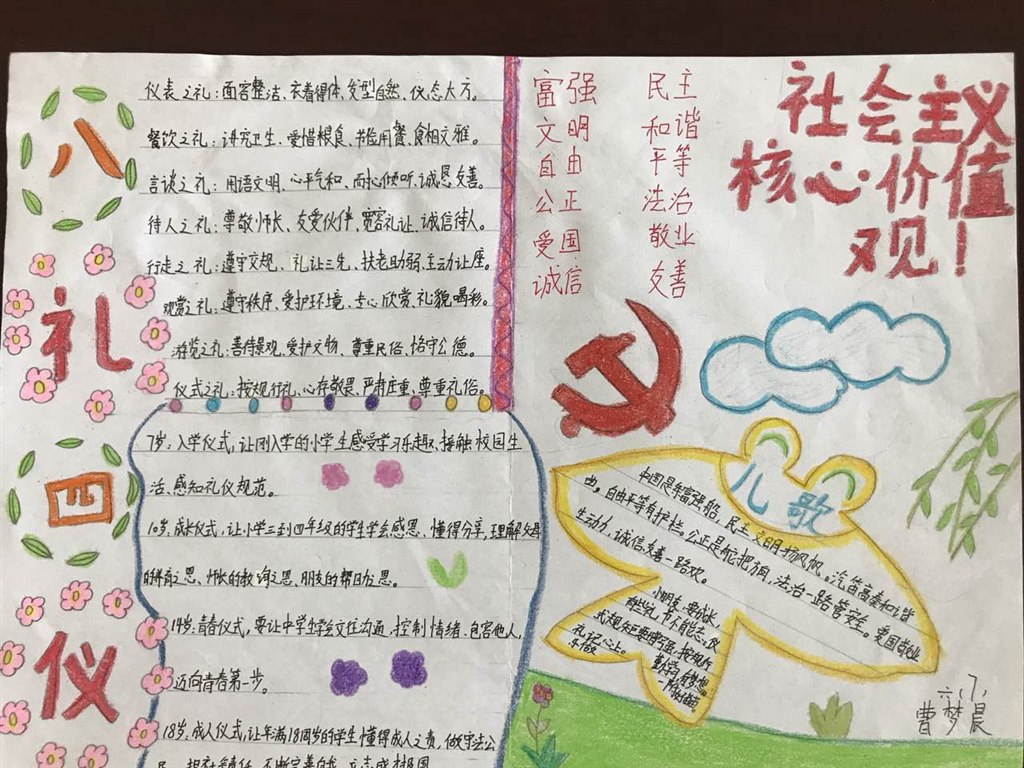 八礼四仪
仪表之礼：面容整洁、衣着得体、发型自然、仪态大方。
餐饮之礼：讲究卫生、爱惜粮食、节俭用餐、食相文雅。
言谈之礼：用语文明、心平气和、耐心倾听、诚恳友善。
待人之礼：尊敬师长、友爱伙伴、宽容礼让、诚信待人。
行走之礼：遵守交规、礼让三先、扶老助弱、主动让座。
观赏之礼：遵守秩序、爱护环境、专心欣赏、礼貌喝彩。
游览之礼：善待景观、爱护文物、尊重民俗、恪守公德。
仪式之礼：按规行礼、心存敬畏、严肃庄重、尊重礼俗。
7岁：入学仪式，让刚入学的小学生感受学习乐趣、接触校园生
活、感知礼仪规范。
10岁，成长仪式，让小学三到四年级的学生学会感恩、懂得分享，理解父母
的养育之恩、师长的教诲之恩、朋友的帮助之恩。
14岁：青春仪式，要让中学生学会交往沟通、控制情绪、包容他人，
迈向青春第一步。
18岁：成人仪式，让年满18周岁的学生懂得成人之责，做守法公
社会主义
核心价值
观！
富强 民主
文明 和谐
自由 平等
公正 法治
爱国 敬业
诚信 友善
儿歌
中国是条富强船，民主文明扬风帆。汽笛高奏和谐
曲。自由平等有护栏。公正是舵把方向，法治一路管安全。爱国敬业
生动力，诚信友善一路欢。
小朋友，要成长，
六、7、
曹梦晨